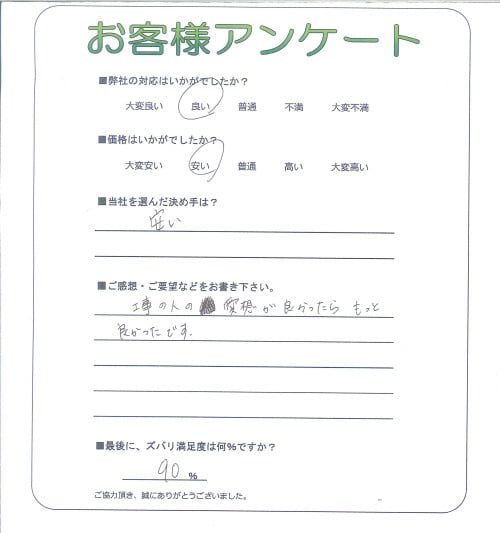 お客様アンケート
■弊社の対応はいかがでしたか？
大変良い 良い 普通 不満 大変不満
■価格はいかがでしたか？
大変安い 安い 普通 高い 大変高い
■当社を選んだ決め手は？
安い
■ご感想・ご要望などをお書き下さい。
工事の人の 愛想が良かったら もっと
良かったです.
■最後に、ズバリ満足度は何％ですか？
90 %
ご協力頂き、誠にありがとうございました。